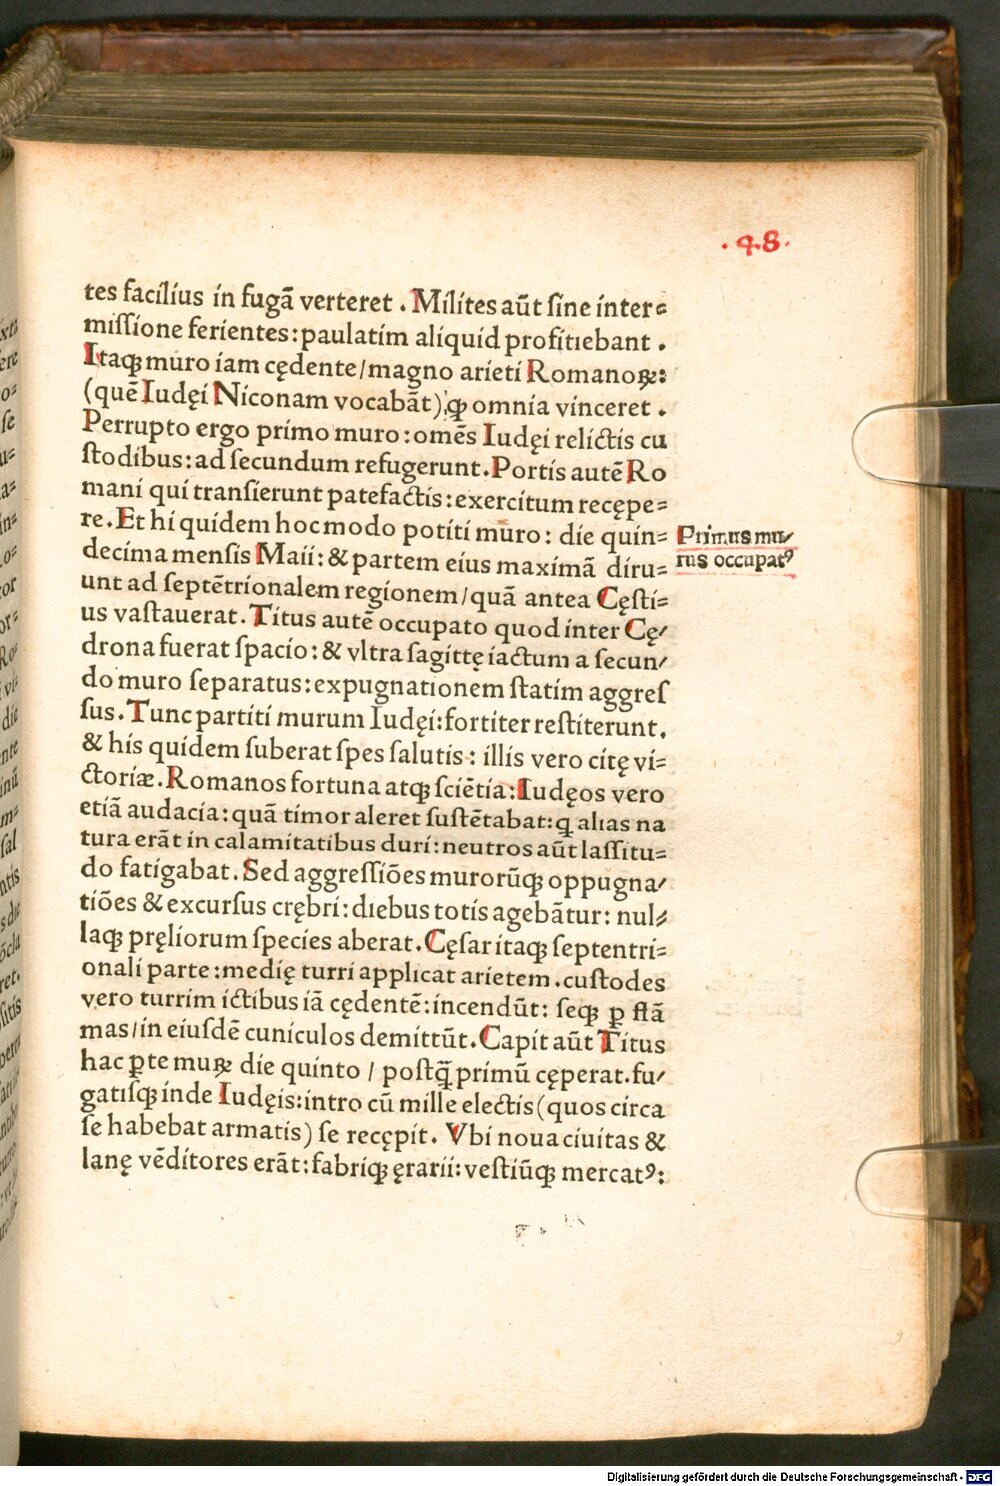 .48.
tes facilius in fugā verteret . Milites aūt sine inter=
missione ferientes: paulatim aliquid profitiebant .
Itaqꝫ muro iam cędente/magno arieti Romanoꝝ:
(quē Iudęi Niconam vocabāt) ꝙ omnia vinceret .
Perrupto ergo primo muro: omēs Iudęi relictis cu
stodibus: ad secundum refugerunt. Portis autē Ro
mani qui transierunt patefactis: exercitum recępe=
re. Et hi quidem hoc modo potiti muro: die quin=
decima mensis Maii: & partem eius maximā diru=
unt ad septētrionalem regionem/quā antea Cęsti=
us vastauerat. Titus autē occupato quod inter Cę/
drona fuerat spacio: & vltra sagittę iactum a secun/
do muro separatus: expugnationem statim aggres
sus. Tunc partiti murum Iudęi: fortiter restiterunt.
& his quidem suberat spes salutis: illis vero citę vi=
ctoriæ. Romanos fortuna atqꝫ sciētia: Iudęos vero
etiā audacia: quā timor aleret sustētabat: q alias na
tura erāt in calamitatibus duri: neutros aūt lassitu=
do fatigabat. Sed aggressiōes murorūqꝫ oppugna/
tiōes & excursus crębri: diebus totis agebātur: nul=
laqꝫ pręliorum species aberat. Cęsar itaqꝫ septentri=
onali parte: medię turri applicat arietem. custodes
vero turrim ictibus iā cędentē: incendūt: seqꝫ ꝑ flā
mas/in eiusdē cuniculos demittūt. Capit aūt Titus
hac ꝑte muꝝ die quinto / postq̄ primū cęperat. fu/
gatisqꝫ inde Iudęis: intro cū mille electis (quos circa
se habebat armatis) se recępit. Vbi noua ciuitas &
lanę vēditores erāt: fabriqꝫ ęrarii: vestiūqꝫ mercatꝰ:
Primus mu/
rus occupatꝰ
Digitalisierung gefördert durch die Deutsche Forschungsgemeinschaft - DFG